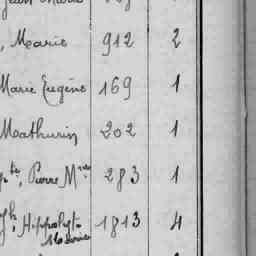 Marie 912 2
Marie Eugène 169 1
Mathurin 202 1
pte, Pierre Mie 283 1
Jh Hippolyte 1813 4